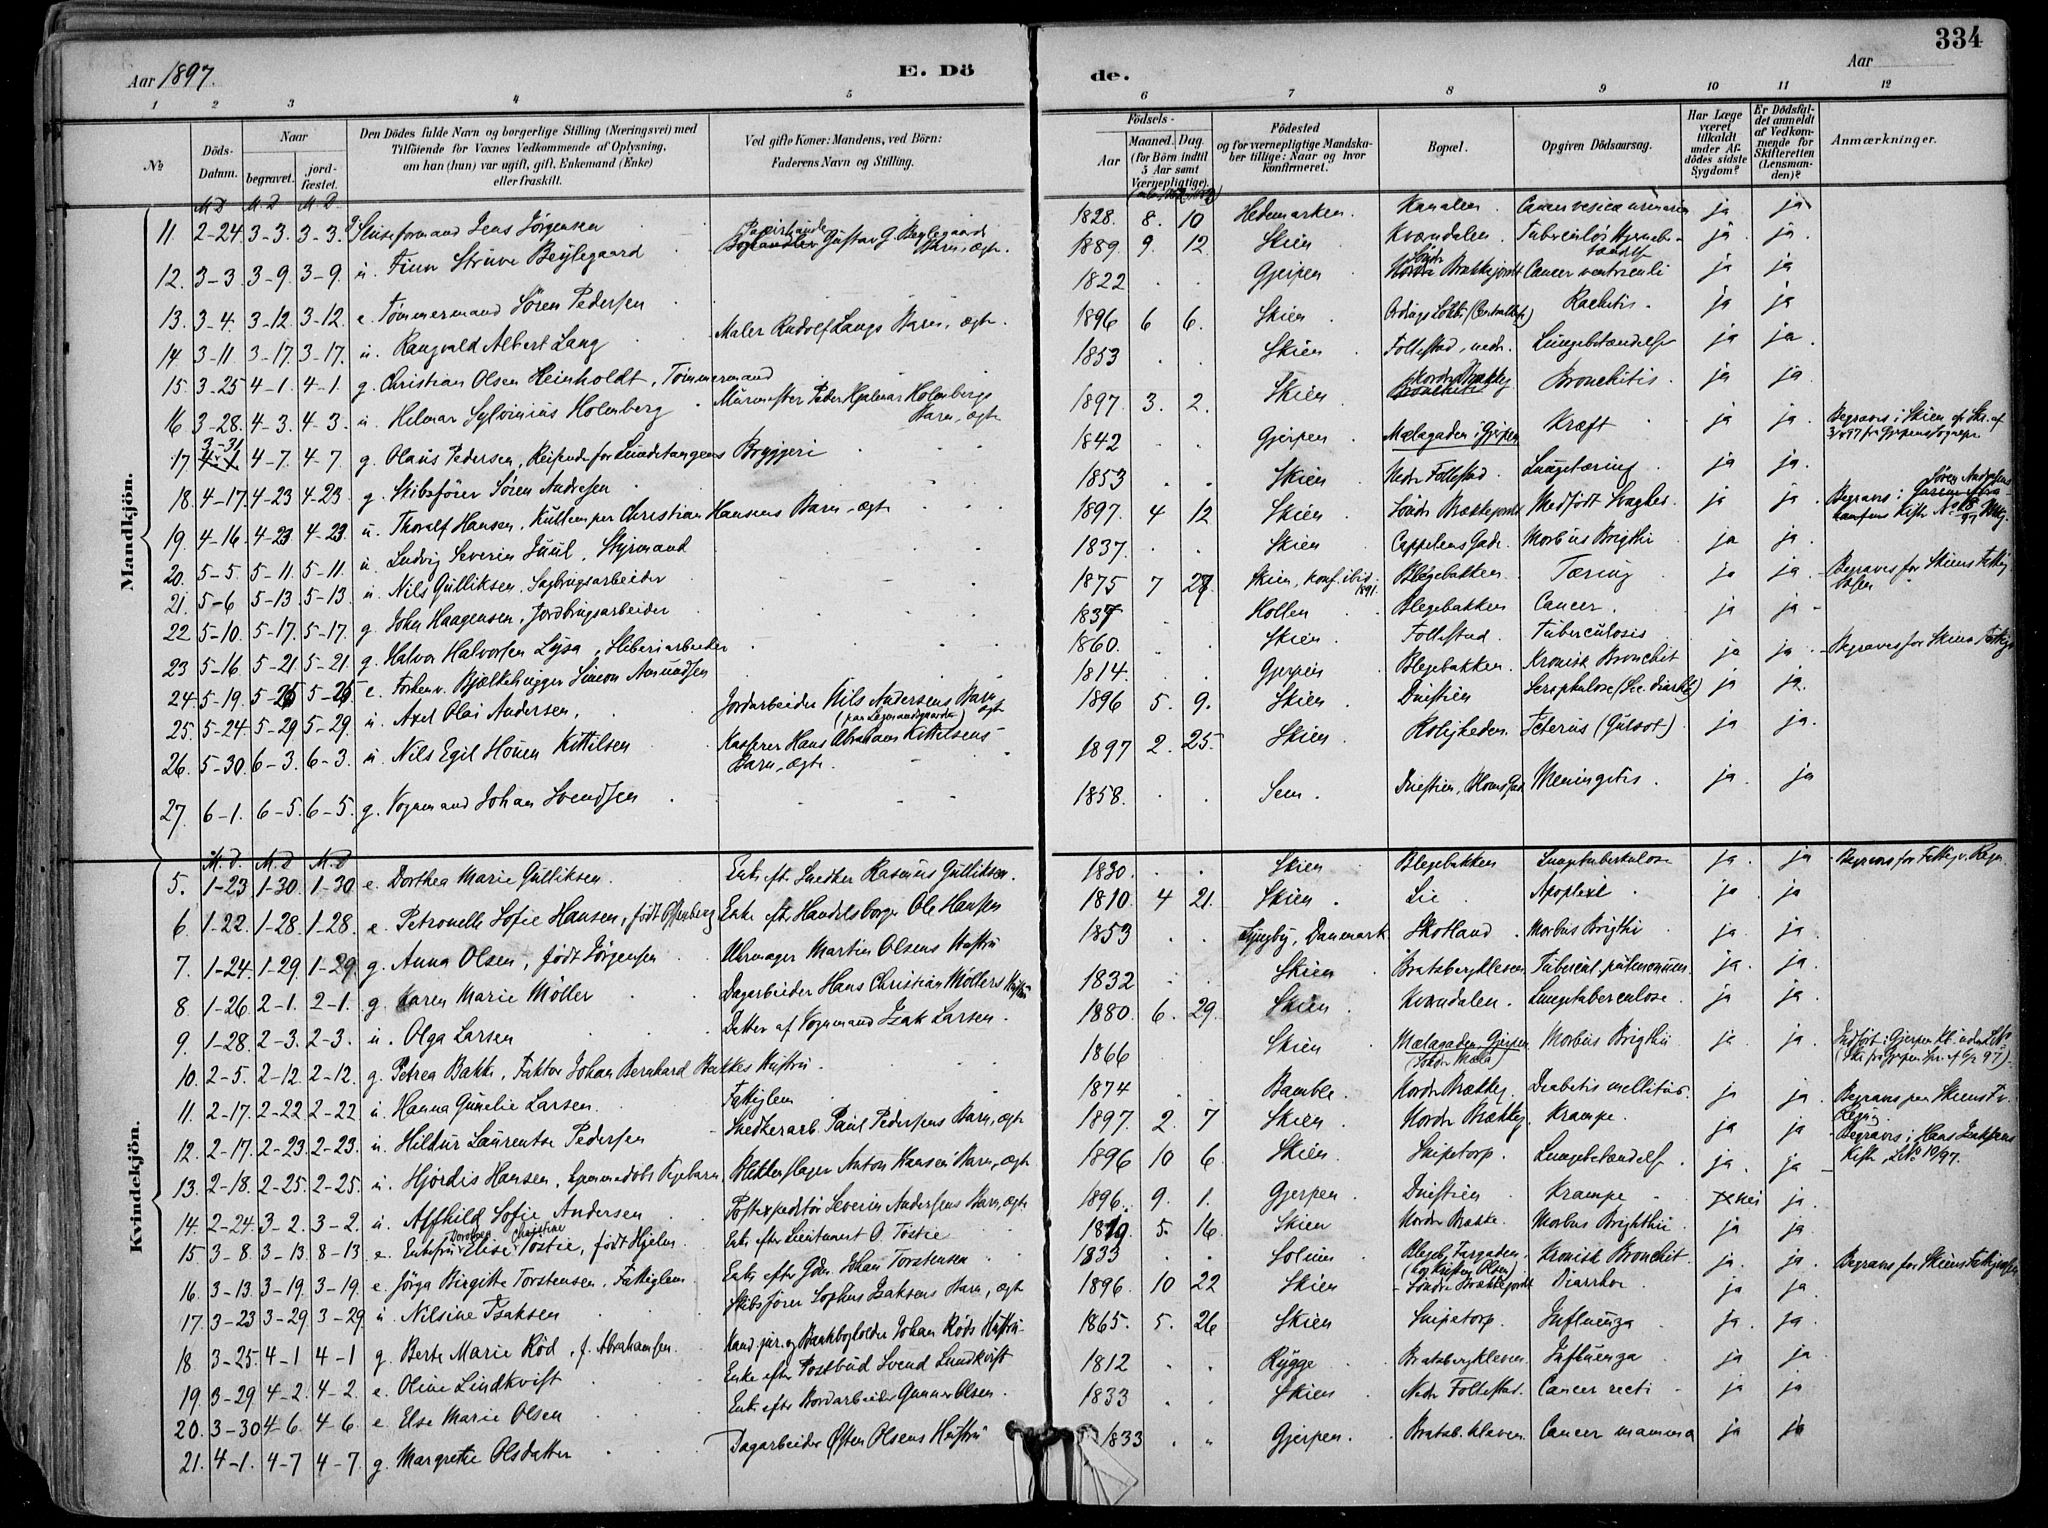 334
Aar 1897. E. Dö de. Aar
1 2 3 4 5 6 7 8 9 10 11 12
№ Döds-Datum. Naar begravet. jordfæstet. Den Dödes fulde Navn og borgerlige Stilling (Næringsvei) med Tilföiende for Voxnes Vedkommende af Oplysning, om han (hun) var ugift, gift, Enkemand (Enke) eller fraskilt. Ved gifte Koner: Mandens, ved Börn: Faderens Navn og Stilling. Födsels- Aar Maaned. Dag. (for Börn indtil 5 Aar samt Værnepligtige). Födested og for værnepligtige Mandskaber tillige: Naar og hvor Konfirmeret. Bopæl. Opgiven Dödsaarsag. Har Læge været tilkaldt under Afdödes sidste Sygdom? Er Dödsfaldet anmeldt af Vedkommende for Skifteretten (Lensmanden)? Anmærkninger.
Mandkjön.
M D M D M D
11. 2-24. 3-3. 3-3. g. Sluseformand Jens Jörgensen 1828. 8. 10 Hedemarken. Kanalen. Cancer vesicæ urinariæ ja ja
12. 3-3. 3-9. 3-9. u. Finn Struve Beylegaard Gustav G. Beylegaards Barn, ægte. 1889. 9. 12. Skien Kværndalen. ja ja.
13. 3-4. 3-12. 3-12. e. Tömmermand Sören Pedersen 1822 Gjerpen Söndr Brækkejordet Cancer ventriculi ja ja
14. 3-11. 3-17. 3-17. u. Rangvald Albert Lang Maler Rudolf Langs Barn, ægte. 1896 6 6. Skien Rachitis. ja ja
15. 3-25. 4-1. 4-1. g. Christian Olsen Heinholdt, Tömmermand 1853 Skien Follestad, nedr. Lungebetændelse ja ja.
16. 3-28. 4-3. 4-3. u. Hilmar Sylvinius Holmberg Murmester Peder Hjalmar Holmbergs Barn, ægte 1897. 3. 2. Skien Nordr Brækkej Bronchitis. ja ja
17. 3-31 4-7. 4-7. g. Olaus Pedersen, Reisende for Lundetangens Bryggeri 1842 Gjerpen Mælagaden i Gjerpen Kræft ja ja. Begravs i Skien
18. 4-17. 4-23 4-23 g. Skibsförer Sören Andresen 1853 Skien Nedr Follestad. Lungetæring ja ja.
19. 4-16. 4-23 4-23 u. Thoralf Hansen, Christian Hansens Barn, ægte 1897. 4 12. Skien Söndr Brækkejordet Medfödt Svaghed. ja ja Begravs i Sören Andresens Kiste No 18/97
20. 5-5. 5-11. 5-11. u. Ludvig Severin Juul, Styrmand 1837. Skien Cappelens Gade. Morbus Brigthi ja ja.
21. 5-6 5-13 5-13. u. Nils Gulliksen, Sagbrugsarbeider 1875 7 27 Skien, konf. ibid. 1891. Blegebakken Tæring ja ja. Begraves for Skiens Fattigvæsen
22. 5-10. 5-17. 5-17. g. John Haagensen, Jordbrugsarbeider 1837 Hollen Blegebakken Cancer. ja ja
23 5-16 5-21. 5-21. g. Halvor Halvorsen Lysa, Sliberiarbeider 1860. Skien. Follestad Tuberculosis
24. 5-19. 5-25 5-25 e. Forhenv. Bjælkehugger Simon Amundsen 1814. Gjerpen Blegebakken. Kronisk Bronchit ja ja.
25. 5-24. 5-29 5-29. u. Axel Olai Andersen. Jordarbeider Nils Andersens Barn, ægte 1896 5. 9. Skien Duestien ja ja.
26. 5-30. 6-3. 6-3. u. Nils Egil Houen Kittilsen Kasserer Hans Abraham Kittilsens Barn, ægte. 1897 2. 25. Skien Roligheden. Icterus (Gulsot). ja ja.
27. 6-1. 6-5. 6-5. g. Vognmand Johan Svendsen 1858. Sem. Duestien, Meningitis. ja ja
Kvindekjön.
M. D. M. D M. D
5. 1-23 1-30. 1-30 e. Dorthea Marie Gulliksen. Enke eft. Snedker Rasmus Gulliksen. 1830. Skien Blegebakken Lungetuberkulose ja. ja Begravs for Fattigv. Regn.
6 1-22. 1-28. 1-28. e. Petronelle Sofie Hansen, födt Enke efter Handelsborger Ole Hansen 1810. 4 21. Skien. Lie Apoplexi ja ja
7. 1-24. 1-29. 1-29 g. Anna Olsen, födt Jörgensen Uhrmager Martin Olsens Hustru 1853 Lyngby, Danmark Skotland Morbus Brigthi ja ja.
8 1-26. 2-1. 2-1. g. Karen Marie Möller Dagarbeider Hans Christian Möllers Hustru 1832 Skien Bratsbergkleven Tubercul. pulmonum. ja ja
9. 1-28. 2-3. 2-3. u. Olga Larsen Datter af Vognmand Isak Larsen. 1880. 6. 29. Skien Kværndalen. Lungetuberculose. ja ja
10. 2-5. 2-12 2-12. g. Petrea Bakke, Faktor Johan Bernhard Bakkes Hustru. 1866 Skien Mælagaden Gjerpen (Söndr Mæla) Morbus Brigthii ja ja.
11. 2-17. 2-22 2-22 u. Hanna Gunelie Larsen. Fattiglem 1874 Bamble. Nordr Brækkej Diabetis mellitus. ja ja. Begravs paa Skiens Fv. Regn.
12. 2-17. 2-23. 2-23. u. Hildur Laurentse Pedersen Snedkerarb. Paul Pedersens Barn, ægte 1897. 2. 7 Skien Nordr Brækkej Krampe. ja ja Begravs i Hans Isaksens Kiste
13. 2-18. 2-25. 2-25. u. Hjördis Hansen, Anton Hansens Barn, ægte 1896 10 6. Skien. Snipetorp. Lungebetændelse ja. ja
14. 2-24. 3-2. 3-2. u. Alfhild Sofie Andersen Postexpeditör Severin Andersens Barn, ægte 1896. 9. 1. Gjerpen Duestien Krampe nei ja
15. 3-8. 3-13. 8-13. e. Enkefru Dorothea Elise Christine Tostie, födt Hjelm. Enke efter Lieutenant O. Tostie 1810. 5. 16. Skien Nordr Brække. Morbus Brighthii ja ja
16. 3-13. 3-19. 3-19. e. Jörga Birgitte Torstensen, Fattiglem Enke efter Gdm. Johan Torstensen 1833 Solum Kronisk Bronchit. ja. ja. Begravs for Skiens
17. 3-23 3-29 3-29 u. Nilsine Isaksen Skibsförer Sophus Isaksens Barn, ægte 1896 10 22 Skien Söndre Brækkejordet Diarrhoe ja ja
18. 3-25. 4-1 4-1 g. Berte Marie Röd, f. Abrahamsen. Kand. jur. og Bankbogholder Johan Röds Hustru. 1865. 5. 26 Skien Snipetorp. Influenza ja. ja.
19. 3-29 4-2. 4-2. e. Oline Lindkvist Enke efter Postbud Svend Lundkvist 1812 Rygge Bratsbergkleven. Influenza. ja ja
20. 3-30 4-6 4-6 e. Else Marie Olsen Enke efter Bordarbeider Gunner Olsen. 1833 Skien Nedr Follestad. Cancer recti ja ja
21. 4-1. 4-7 4-7. g. Margrethe Olsdatter Dagarbeider Östen Olsens Hustru 1833 Gjerpen. Bratsb.kleven Cancer mamma ja ja